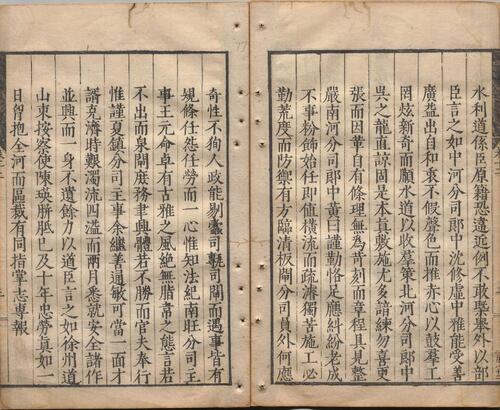 水利道係臣原籍恐違近例不敢槩舉外以部
臣言之如中河分司郎中沈修虛中雅能受善
廣益出自和衷不假聲色而推赤心以鼓羣工
罔炫新奇而順水道以收羣策北河分司郎中
吳之龍直諒固是本真敷施尤多諳練勿喜更
張而因革自有條理無為苛刻而章程具見整
嚴南河分司郎中黃曰謹勤恪足應糾紛老成
不事粉飾始任即值橫流而疏濬獨苦施工必
勤荒度而防禦有方臨清板閘分司員外何應
奇性不狥人政能剔蠹司甎司閘而遇事皆有
規條任怨任勞而一心惟知法紀南旺分司主
事王元命卓有古雅之風絕無脂韋之態言若
不出而泉閘庶務聿興體若不勝而官夫奉行
惟謹夏鎮分司主事余繼善通敏可當一面才
諝克濟時艱濁流四溢而兩月悉就安全諸作
並興而一身不遺餘力以道臣言之如徐州道
山東按察使陳瑛胼胝已及十年忠勞真如一
日曾抱全河而區裁有同指掌志專報